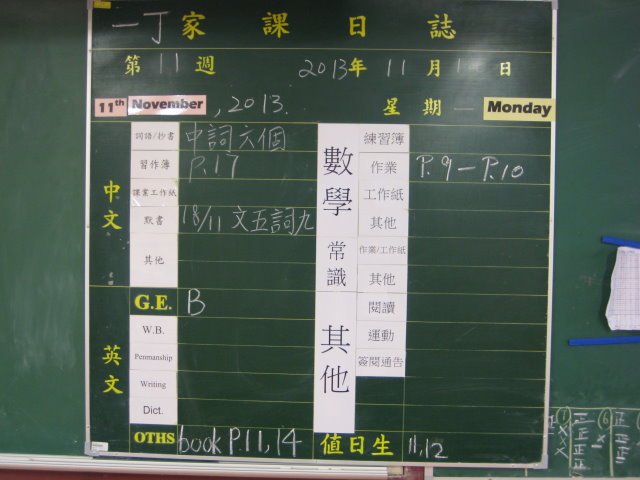 一丁家課日誌
第 11 週 2013年 11 月 11 日
11th November, 2013. 星期一 Monday
中文
詞語/抄書 中詞六個
習作簿 P.17
課業工作紙
默書 18/11 文五詞九
其他
英文
G.E. B
W.B.
Penmanship
Writing
Dict.
OTHS book P.11, 14
數學
練習簿
作業 P.9 - P.10
工作紙
其他
常識
作業/工作紙
其他
其他
閱讀
運動
簽閱通告
值日生 11, 12